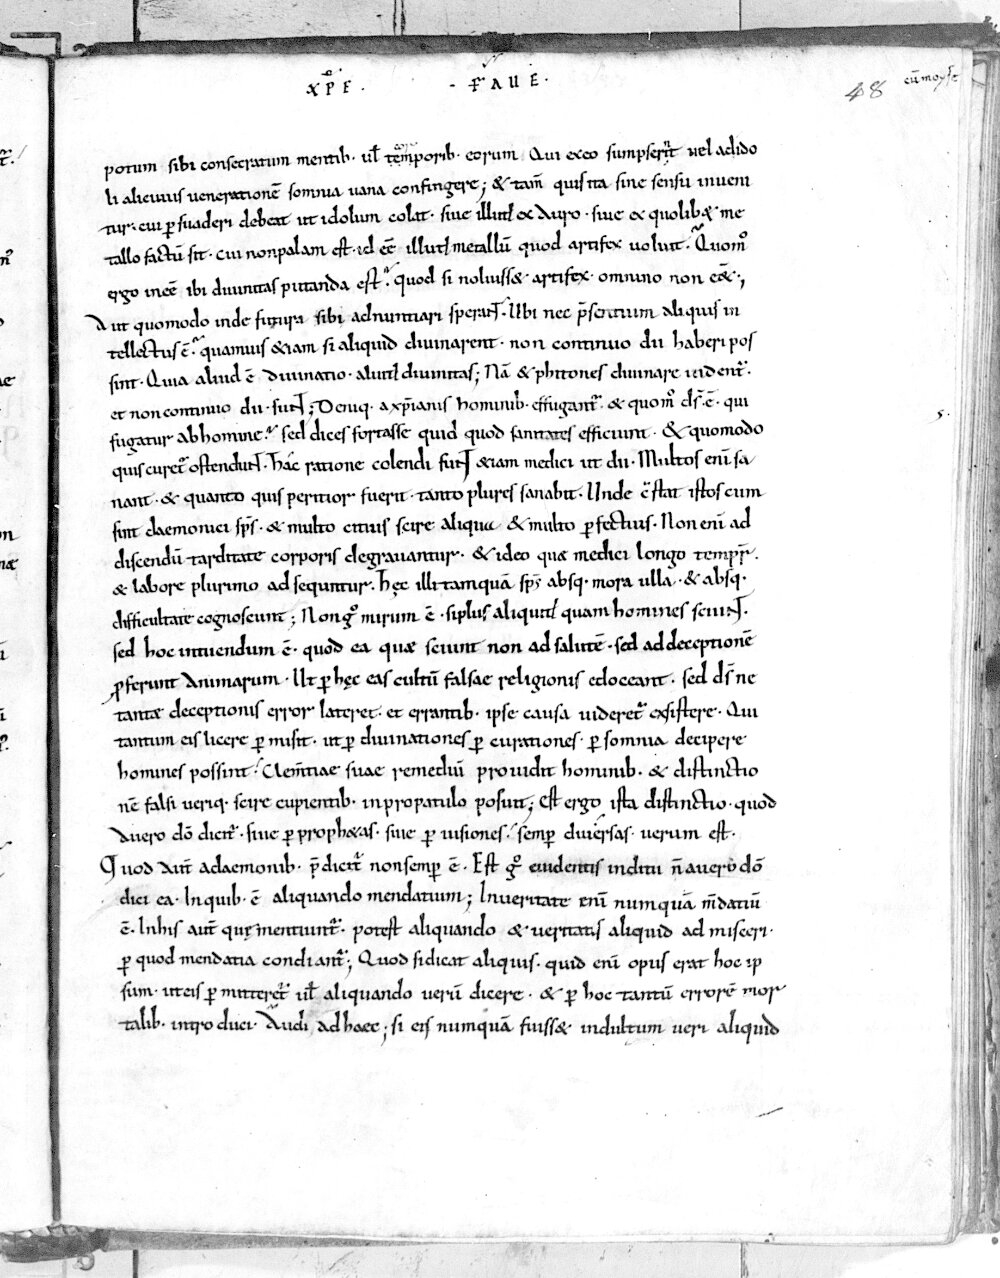 xp̄e . · faue ·
48 cū moẏse
potum sibi consecratum mentib· ul̄ tēmporib· eorum Qui ex eo sumpserīt uel ad ido
li alicuius ueneratione᷑ somnia uana confingere; & tam̄ quis ita sine sensu inueni
tur· cui p̱suaderi debeat ut idolum colat· siue illud ex auro· siue ex quolib& me
tallo factū sit· cui non palam est· id eē illud metallū quod artifex uoluit· Quom̊
ergo inēe ibi diuinitas putanda est· quod si noluiss& artifex· omnino non eē&·;
Aut quomodo inde futura sibi adnuntiari sperant· Ubi nec p̄sentium aliquis in
tellectus ē· quamuis &iam si aliquid diuinarent· non continuo dii haberi pos
sint· Quia aliud ē diuinatio· aliud diuinitas; Nā & phitones diuinare uident᷑·
et non continuo dii· sunt; Deniq· a xp̄ianis hominib· effugant᷑· & quom̊ ds̄ ē· qui
fugatur ab homine· sed dices fortasse quid quod sanitates efficiunt· & quomodo
quis curet᷑ ostendunt· hac ratione colendi sunt &iam medici ut dii· Multos eni᷑ sa
nant· & quanto quis peritior fuerit· tanto plures sanabit· Unde c̄stat istos cum
sint daemonici sps̄· & multo citius scire aliqua & multo p̱fectius· Non eni᷑ ad
discendū tarditate corporis degrauantur· & ideo quæ medici longo tempr̄·
& labore plurimo adsequntur· hęc illi tamquā sps̄ absq· mora ulla· & absq·
difficultate cognoscunt; Non gͦ mirum ē· si plus aliquid quam homines sciunt·
sed hoc intuendum ē· quod ea quæ sciunt non ad salutē· sed ad deceptionē
ꝓferunt animarum· Ut p̱ hęc eas cultū falsae religionis edoceant· sed ds̄ ne
tantæ deceptionis error lateret· et errantib· ipse causa uideret᷑ exsistere· Qui
tantum eis licere p̱misit· ut p̱ diuinationes p̱ curationes· p̱ somnia decipere
homines possint· Clem̄tiae suae remediū prouidit hominib· & distinctio
nē falsi ueriq· scire cupientib· in propatulo posuit; Est ergo ista distinctio· quod
a uero dō dicit᷑· siue p̱ proph&as· siue p̱ uisiones· semp̱ diuersas· uerum est·
Quod aut̄ a daemonib· p̄dicit᷑ non semp̱ ē· Est gͦ euidentis inditii n̄ a uero dō
dici ea· In quib· ē aliquando mendatium; In ueritate eni᷑ numquā m̄datiū
ē· In his aut̄ quę mentiunt᷑· potest aliquando & ueritatis aliquid admisceri·
p̱ quod mendatia condiant᷑; Quod si dicat aliquis· quid eni᷑ opus erat hoc ip
sum· ut eis p̱mitteret᷑ ul̄ aliquando uerū dicere· & p̱ hoc tantū errorē mor
talib· introduci· Audi ad haec; si eis numquā fuiss& indultum ueri aliquid